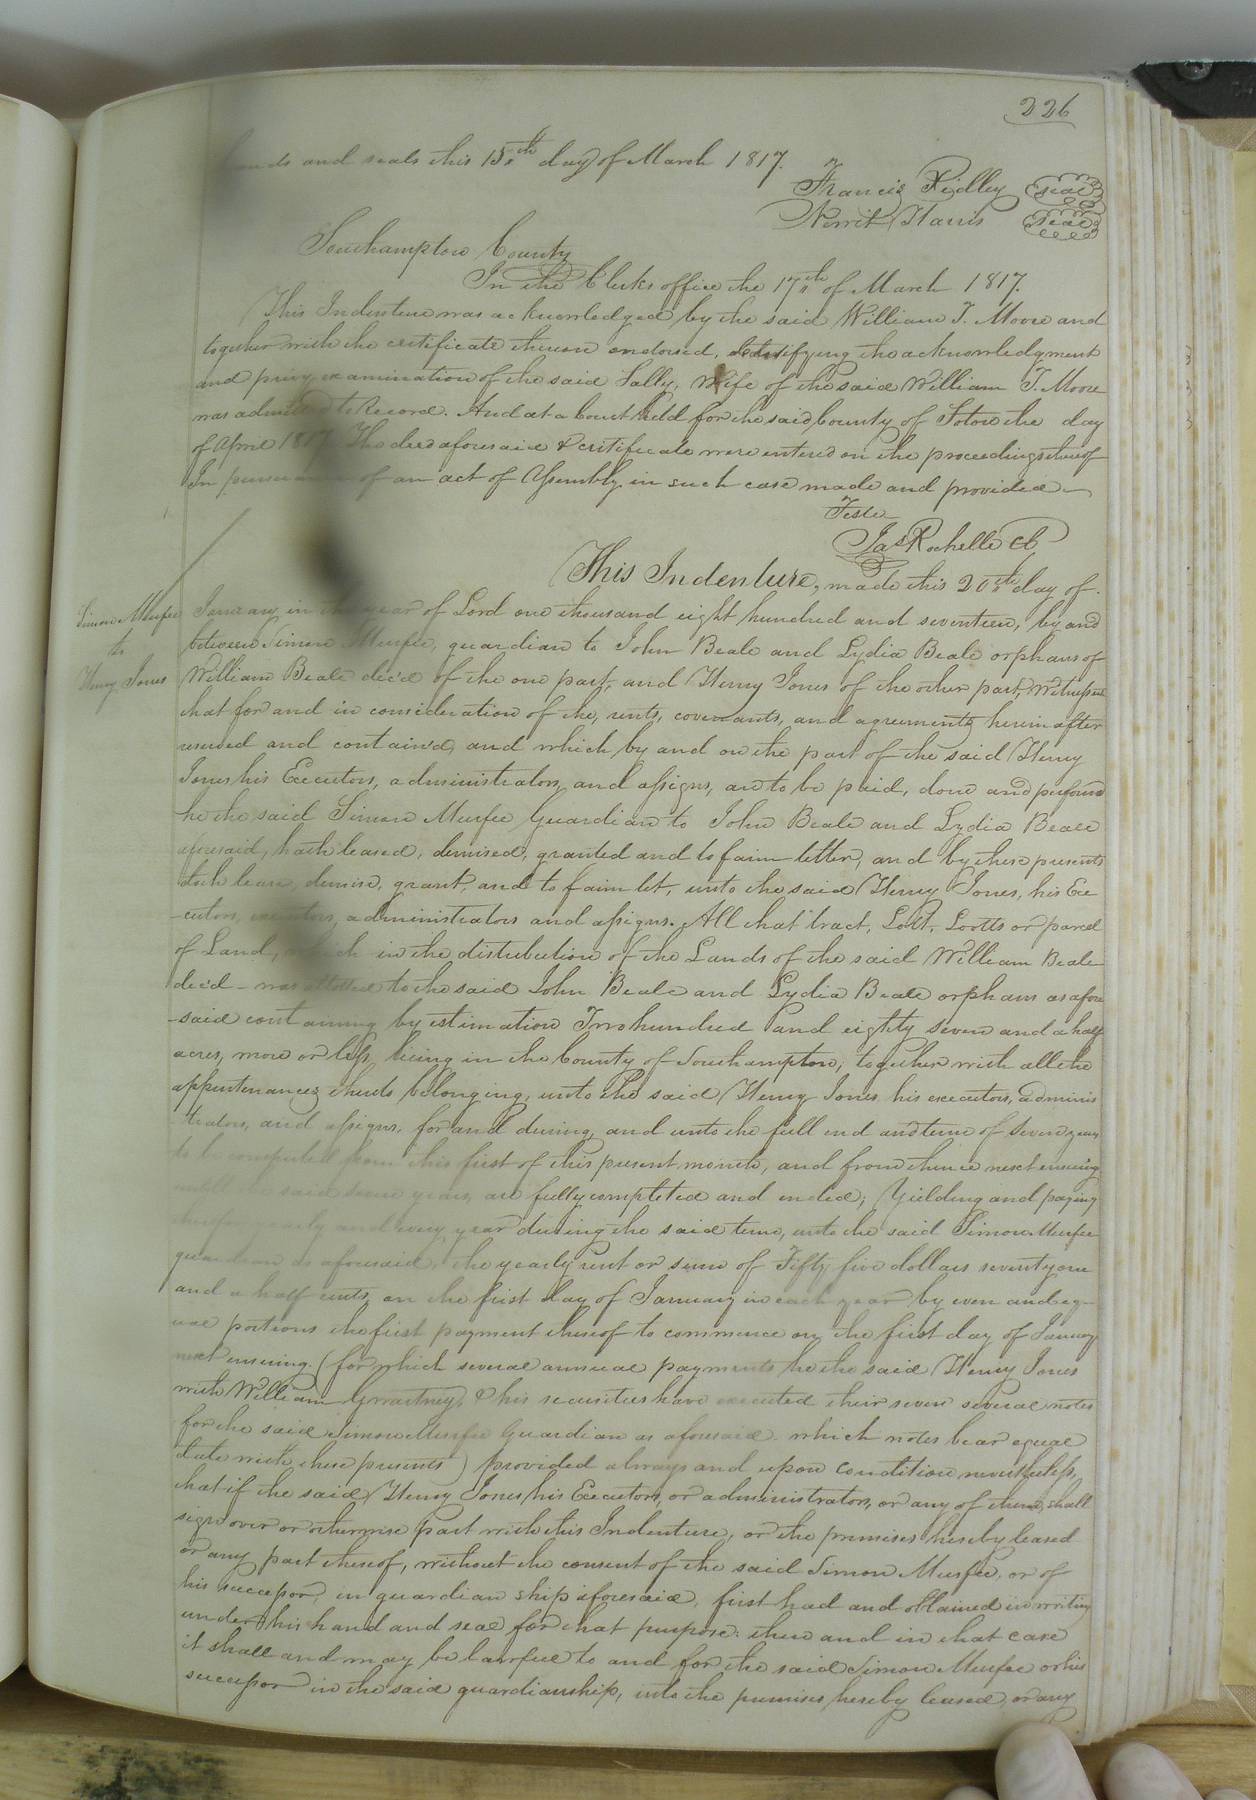 226
hands and seals this 15th day of March 1817.
Francis Ridley seal
Newit Harris seal
Southampton County
In the Clerks office the 17th of March 1817.
This Indenture was acknowledged by the said William T. Moore and
together with the certificate thereon endorsed, certifying the acknowledgment
and privy examination of the said Sally, Wife of the said William T. Moore
was admitted to Record. And at a Court held for the said County of Soton the day
of April 1817 The deed aforesaid & certificate were entered on the proceedings thereof
In pursuance of an act of Assembly in such case made and provided
Teste
Jas Rochelle CC
This Indenture, made this 20th day of
Simon Murfee
to
Henry Jones
January in the year of Lord one thousand eight hundred and seventeen, by and
between Simon Murfee, guardian to John Beale and Lydia Beale orphans of
William Beale dec'd of the one part, and Henry Jones of the other part, Witnesseth
that for and in consideration of the, rents, covenants, and agreements herein after
reserved and contain'd, and which by and on the part of the said Henry
Jones his Executors, administrators, and assigns, are to be paid, done and performed
he the said Simon Murfee Guardian to John Beale and Lydia Beale
aforesaid, hath leased, demised, granted and to farm letten, and by these presents
doth lease, demise, grant, and to farm let, unto the said Henry Jones, his Exe
-cutors, executors, administrators and assigns. All that tract, Lott, Lotts or parcel
of Land, which in the distribution of the Lands of the said William Beale
dec'd - was allotted to the said John Beale and Lydia Beale orphans as afore
-said containing by estimation Two hundred and eighty seven and a half
acres, more or less, lieing in the County of Southampton, together with all the
appurtenances thereto belonging, unto the said Henry Jones his executors, adminis
trators, and assigns, for and during, and unto the full end and term of Seven years
to be computed from this first of this present month, and from thence next ensuing
until the said seven years, are fully completed and ended; Yielding and paying
therefor yearly and every year during the said term, unto the said Simon Murfee
guardian as aforesaid, the yearly rent or sum of Fifty five dollars seventy one
and a half cents, on the first day of January in each year by even and eq-
ual portions the first payment thereof to commence on the first day of January
next ensuing. (for which several annual payments he the said Henry Jones
with William & his securities have executed their seven several notes
for the said Simon Murfee Guardian as aforesaid. which notes bear equal
date with these presents) provided always and upon condition nevertheless,
that if the said Henry Jones, his Executors, or administrators, or any of them, shall
sign over or otherwise part with this Indenture, or the premises hereby leased
or any part thereof, without the consent of the said Simon Murfee, or of
his successor, in guardian ship aforesaid, first had and obtained in writing
under his hand and seal for that purpose: then and in that case
it shall and may be lawful to and for the said Simon Murfee or his
successor in the said guardianship, into the premises hereby leased, or any